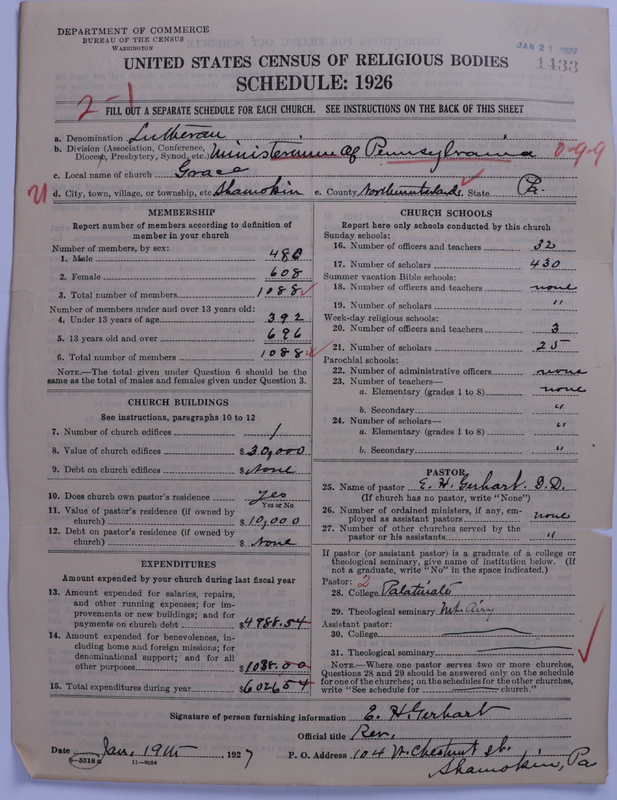 DEPARTMENT OF COMMERCE
BUREAU OF THE CENSUS
WASHINGTON
JAN 21 1927
1433
UNITED STATES CENSUS OF RELIGIOUS BODIES
SCHEDULE: 1926
2-1
FILL OUT A SEPARATE SCHEDULE FOR EACH CHURCH. SEE INSTRUCTIONS ON THE BACK OF THIS SHEET
a. Denomination Lutheran
b. Division (Association, Conference, Diocese, Presbytery, Synod, etc.) Ministerium of Pennsylvania 0-9-9
c. Local name of church Grace
d. City, town, village, or township, etc. Shamokin e. County Northumberland. State Pa.
MEMBERSHIP
Report number of members according to definition of
member in your church
Number of members, by sex:
1. Male 480
2. Female 608
3. Total number of members 1088
Number of members under and over 13 years old:
4. Under 13 years of age 392
5. 13 years old and over 696
6. Total number of members 1088
NOTE.—The total given under Question 6 should be
same as the total of males and females given under Question 3.
CHURCH BUILDINGS
See instructions, paragraphs 10 to 12
7. Number of church edifices 1
8. Value of church edifices $30,000
9. Debt on church edifices $None
10. Does church own pastor's residence Yes
Yes or No
11. Value of pastor's residence (if owned by
church) $10,000
12. Debt on pastor's residence (if owned by
church) $None
EXPENDITURES
Amount expended by your church during last fiscal year
13. Amount expended for salaries, repairs,
and other running expenses; for im-
provements or new buildings; and for
payments on church debt $4988.54
14. Amount expended for benevolences, in-
cluding home and foreign missions; for
denominational support; and for all
other purposes $1038.00
15. Total expenditures during year $6026.54
CHURCH SCHOOLS
Report here only schools conducted by this church
Sunday schools:
16. Number of officers and teachers 32
17. Number of scholars 430
Summer vacation Bible schools:
18. Number of officers and teachers none
19. Number of scholars "
Week-day religious schools:
20. Number of officers and teachers 3
21. Number of scholars 25
Parochial schools:
22. Number of administrative officers none
23. Number of teachers—
a. Elementary (grades 1 to 8) none
b. Secondary "
24. Number of scholars—
a. Elementary (grades 1 to 8) "
b. Secondary "
PASTOR
25. Name of pastor E. H. Gerhart. D.D.
(If church has no pastor, write "None")
26. Number of ordained ministers, if any, em-
ployed as assistant pastors none
27. Number of other churches served by the
pastor or his assistants "
If pastor (or assistant pastor) is a graduate of a college or
theological seminary, give name of institution below. (If
not a graduate, write "No" in the space indicated.)
Pastor: 2
28. College Palatinate
29. Theological seminary Mt. Airy
Assistant pastor:
30. College
31. Theological seminary
NOTE.—Where one pastor serves two or more churches,
Questions 28 and 29 should be answered only on the schedule
for one of the churches; on the schedules for the other churches,
write "See schedule for church."
Signature of person furnishing information E. H. Gerhart
Official title Rev.
Date Jan. 19th 1927 P. O. Address 104 W. Chestnut St.
Shamokin, Pa
8-5518a 11-9054